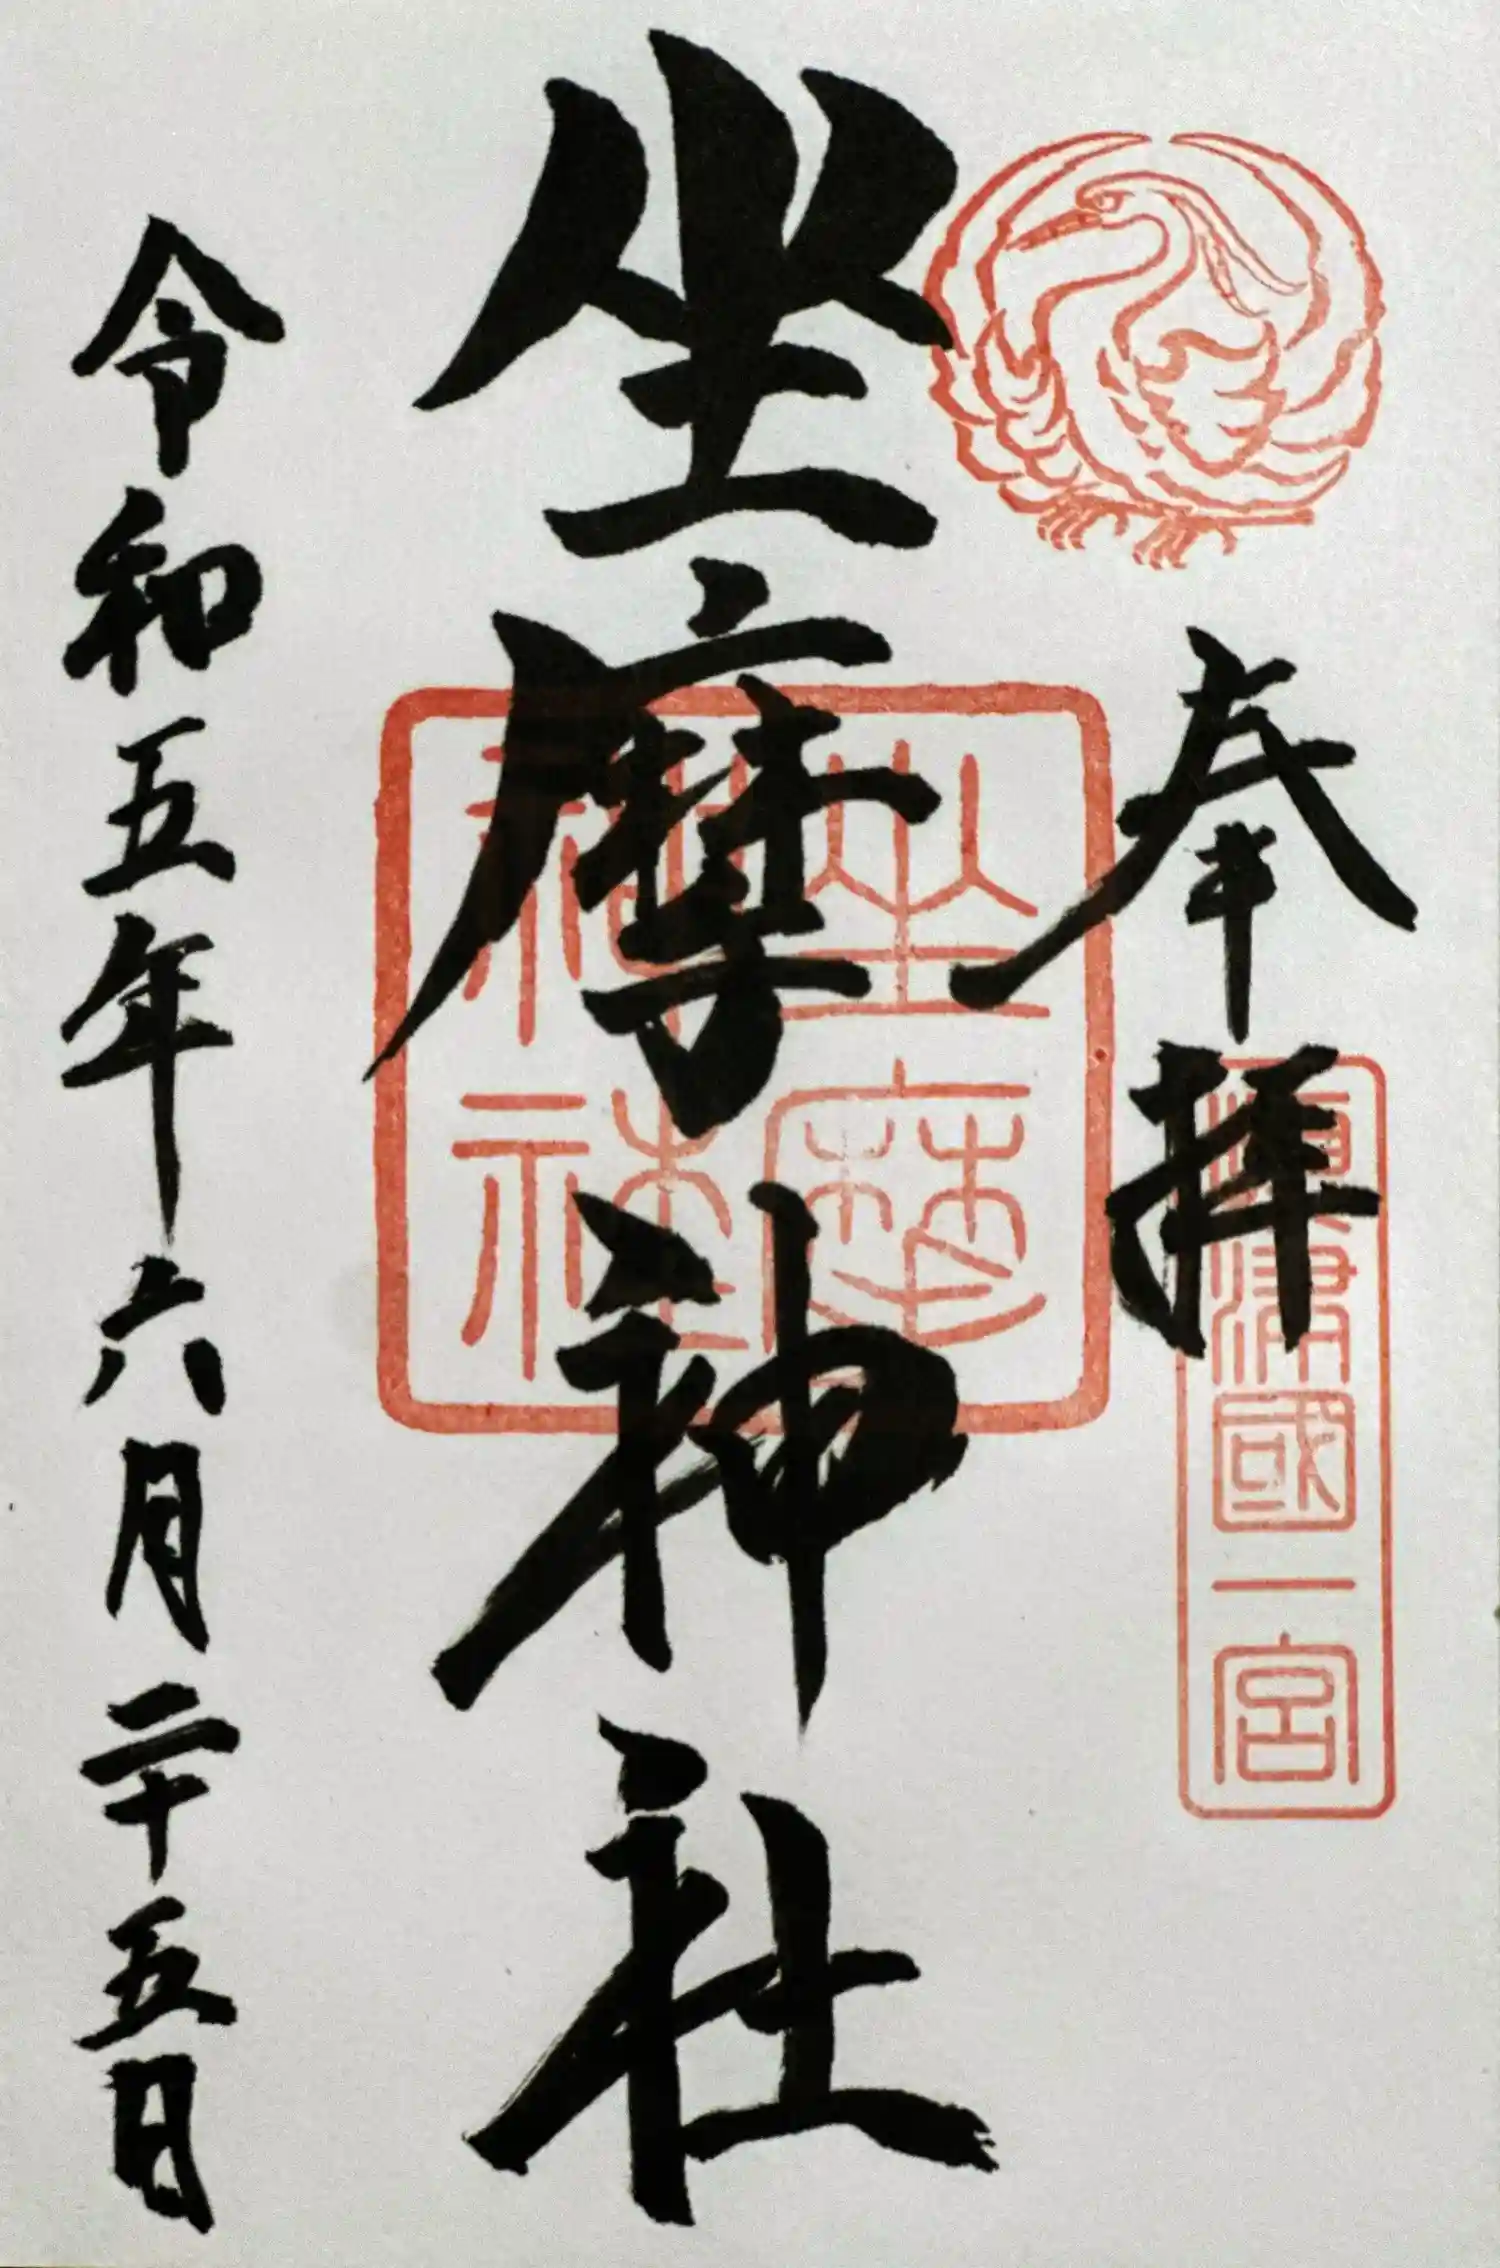 奉拝
攝津國一宮
坐摩神社
坐摩
神社
令和五年六月二十五日